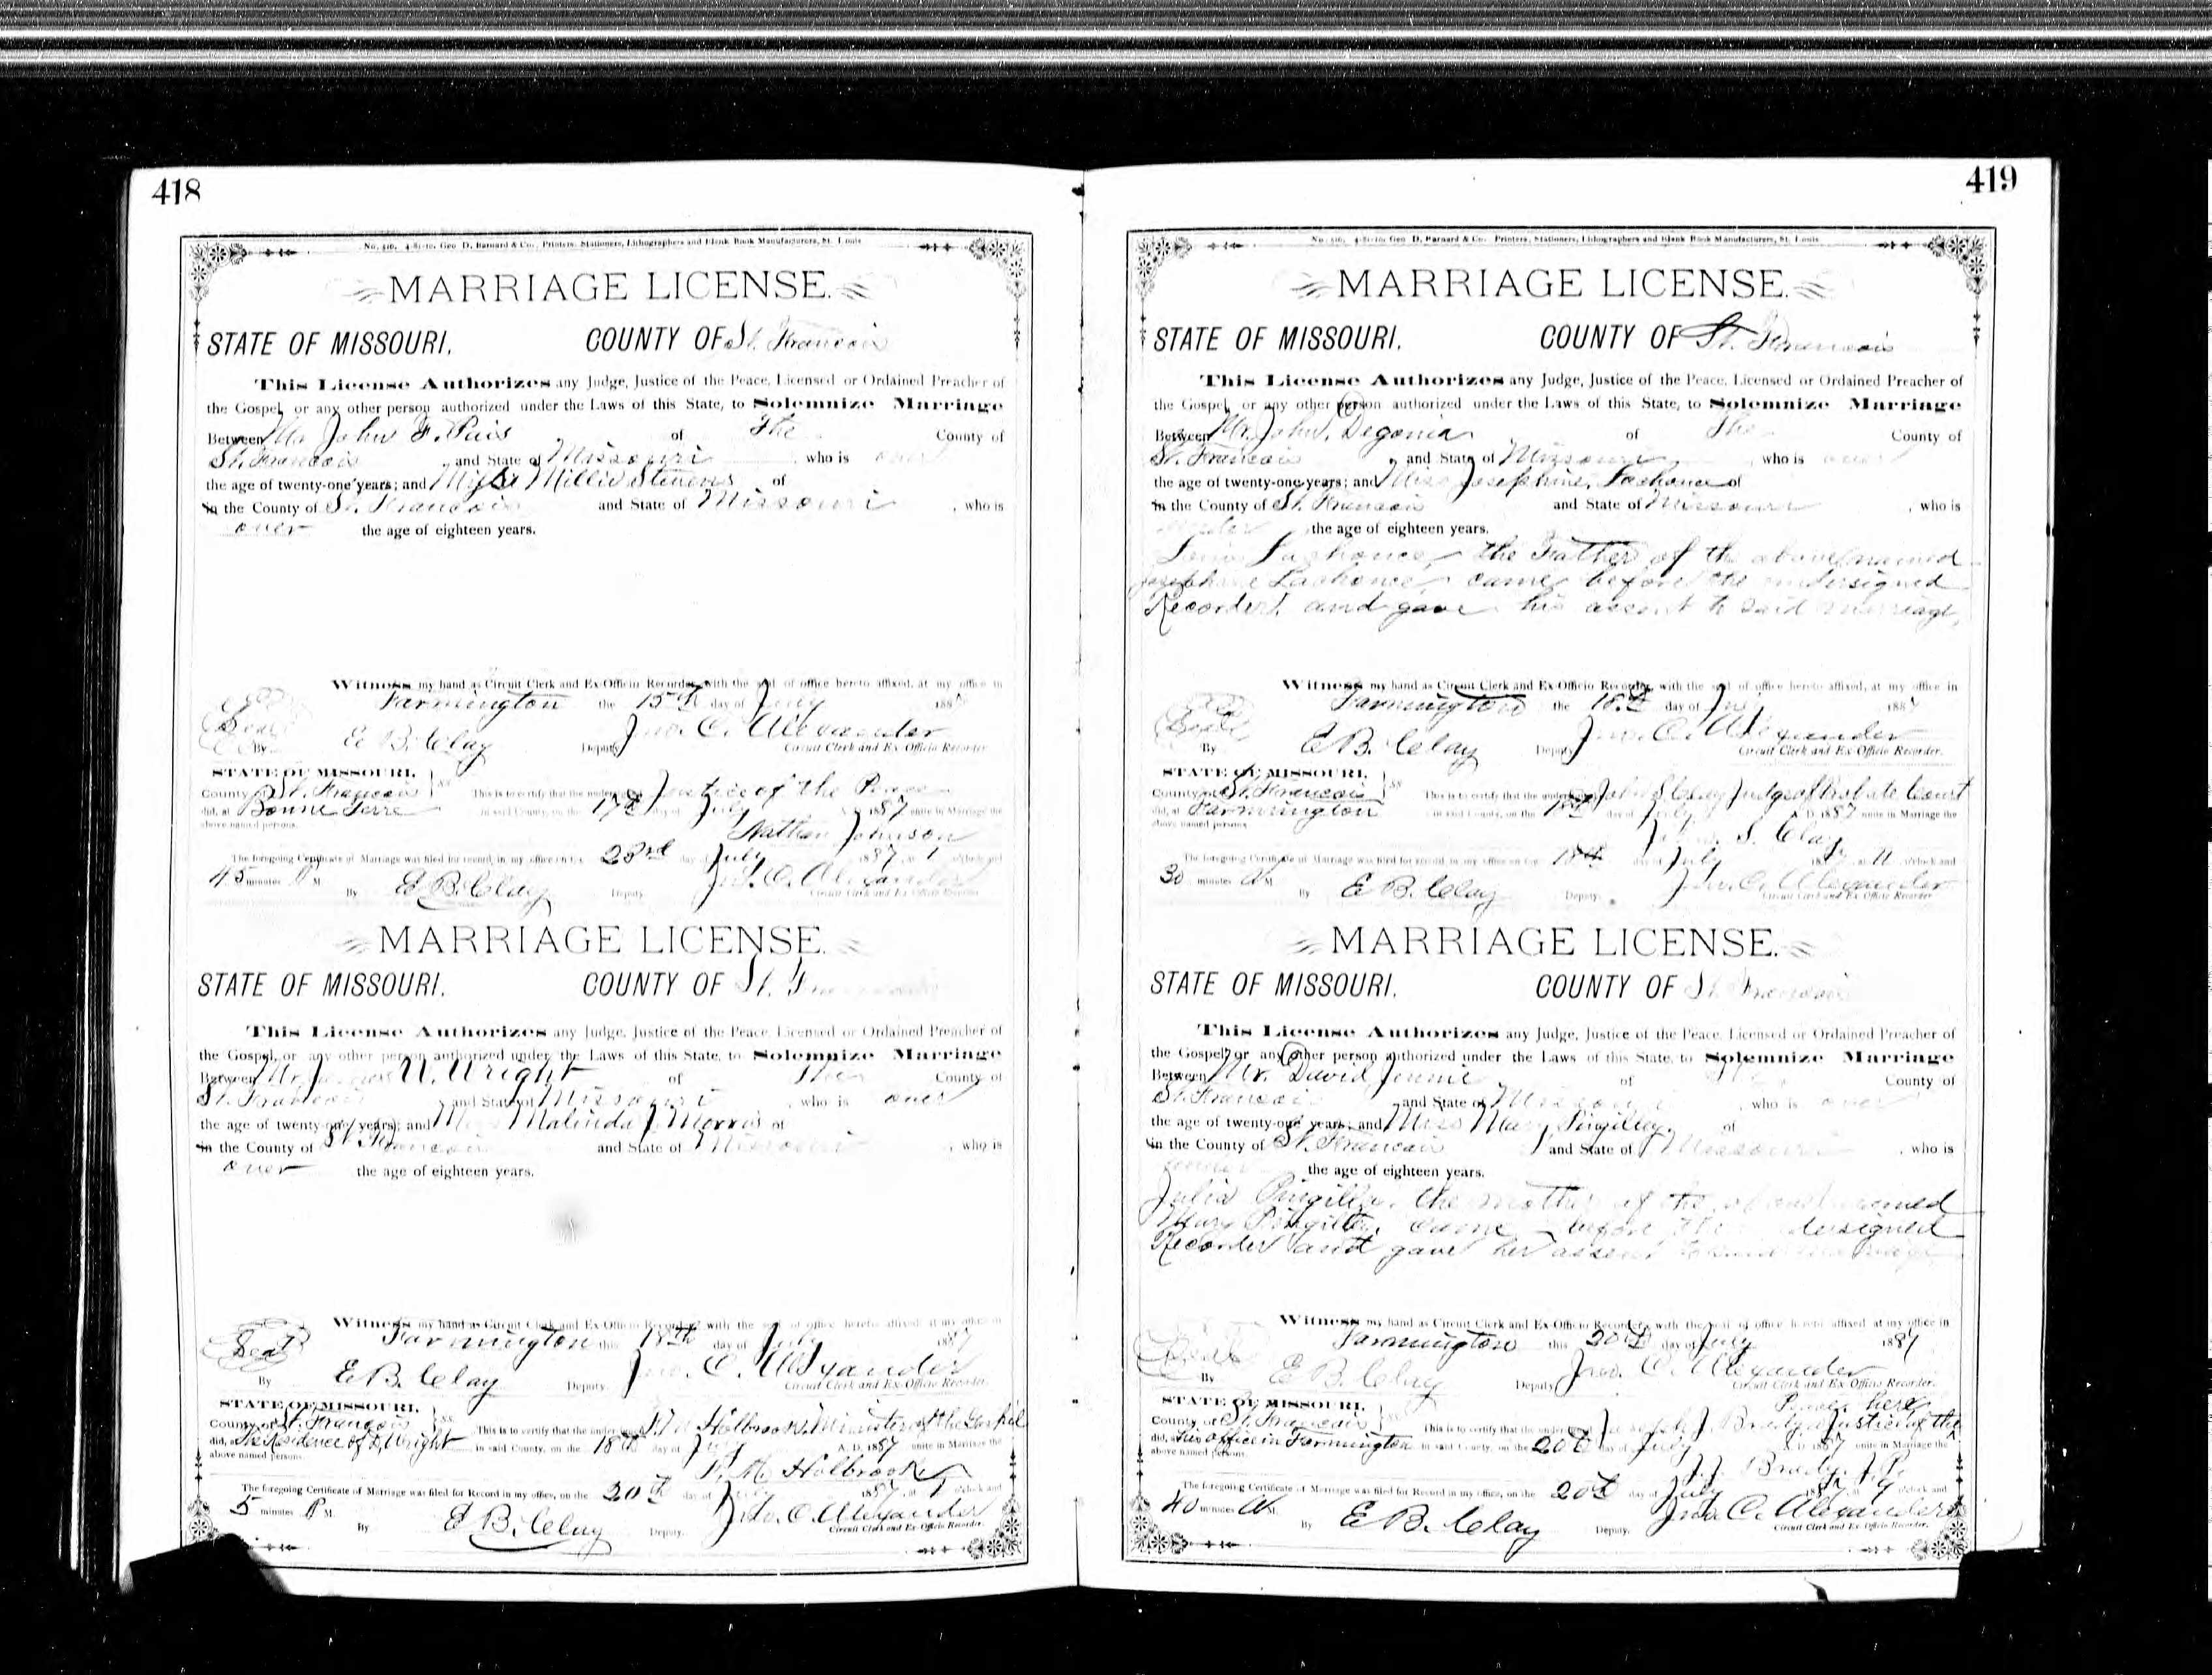 418
No. 416, 4-81-10, Geo. D. Barnard & Co., Printers, Stationers, Lithographers and Blank Book Manufacturers, St. Louis
MARRIAGE LICENSE.
STATE OF MISSOURI. COUNTY OF St. Francois
This License Authorizes any Judge, Justice of the Peace, Licensed or Ordained Preacher of
the Gospel, or any other person authorized under the Laws of this State, to Solemnize Marriage
Between Mr John F. of The County of
St. Francois and State of Missouri, who is over
the age of twenty-one years; and Millie Stevens of
in the County of St. Francois and State of Missouri, who is
over the age of eighteen years.
Witness my hand as Circuit Clerk and Ex-Officio Recorder, with the seal of office hereto affixed, at my office in
Farmington the 15th day of July 188
Seal
By E B. Clay Deputy Jno. C. Alexander
Circuit Clerk and Ex-Officio Recorder.
STATE OF MISSOURI,
County of St. Francois ss This is to certify that the undersigned Justice of the Peace
did, at Bonne Terre in said County, on the 17th day of July A. D. 1887 unite in Marriage the
above named persons.
Nathan Johnson
The foregoing Certificate of Marriage was filed for record, in my office on the 23rd day of July 1887, at 1 o'clock and
45 minutes P M.
By E B. Clay Deputy Jno. C. Alexander
Circuit Clerk and Ex-Officio Recorder
MARRIAGE LICENSE.
STATE OF MISSOURI. COUNTY OF St.
This License Authorizes any Judge, Justice of the Peace, Licensed or Ordained Preacher of
the Gospel, or any other person authorized under the Laws of this State, to Solemnize Marriage
Between Mr. Wright of The County of
St. Francois and State of Missouri, who is over
the age of twenty-one years; and Malinda J. Morris of
in the County of St. Francois and State of Missouri, who is
over the age of eighteen years.
Witness my hand as Circuit Clerk and Ex-Officio Recorder, with the seal of office hereto affixed, at my office in
Farmington this 18th day of July 1887
Seal
By E B. Clay Deputy Jno. C. Alexander
Circuit Clerk and Ex-Officio Recorder.
STATE OF MISSOURI,
County of St. Francois ss This is to certify that the undersigned Holbrook, Minister of the Gospel
did, at The Residence of Wright in said County, on the 18th day of July A. D. 1887 unite in Marriage the
above named persons.
M. Holbrook
The foregoing Certificate of Marriage was filed for Record in my office, on the 20th day of July 1887, at 1 o'clock and
5 minutes P M.
By E B. Clay Deputy. Jno. C. Alexander
Circuit Clerk and Ex-Officio Recorder.
419
No. 416, 4-81-10, Geo. D. Barnard & Co. Printers, Stationers, Lithographers and Blank Book Manufacturers, St. Louis
MARRIAGE LICENSE.
STATE OF MISSOURI. COUNTY OF St. Francois
This License Authorizes any Judge, Justice of the Peace, Licensed or Ordained Preacher of
the Gospel, or any other person authorized under the Laws of this State, to Solemnize Marriage
Between Mr. John Degonia of The County of
St. Francois and State of Missouri, who is over
the age of twenty-one years; and Miss Josephine Lashonce of
in the County of St. Francois and State of Missouri, who is
under the age of eighteen years.
Louis Lashonce, the Father of the above named
Josephine Lashonce, came before the undersigned
Recorder, and gave his assent to said marriage,
Witness my hand as Circuit Clerk and Ex-Officio Recorder, with the seal of office hereto affixed, at my office in
Farmington the 18th day of 1887
Seal
By E B. Clay Deputy Jno. C. Alexander
Circuit Clerk and Ex-Officio Recorder.
STATE OF MISSOURI,
County of St. Francois ss This is to certify that the undersigned John S. Clay Judge of Probate Court
did, at Farmington in said County, on the 18th day of July A. D. 1887 unite in Marriage the
above named persons.
S. Clay
The foregoing Certificate of Marriage was filed for record, in my office on the 18th day of July 1887, at 11 o'clock and
30 minutes A M.
By E B. Clay Deputy. Jno. C. Alexander
Circuit Clerk and Ex-Officio Recorder
MARRIAGE LICENSE.
STATE OF MISSOURI. COUNTY OF St. Francois
This License Authorizes any Judge, Justice of the Peace, Licensed or Ordained Preacher of
the Gospel, or any other person authorized under the Laws of this State, to Solemnize Marriage
Between Mr. David Jennie of County of
St. Francois and State of Missouri, who is over
the age of twenty-one years; and Miss Mary Pingilley of
in the County of St. Francois and State of Missouri, who is
the age of eighteen years.
Julia the mother of the above named
Mary came before the undersigned
Recorder and gave her assent to said marriage
Witness my hand as Circuit Clerk and Ex-Officio Recorder, with the seal of office hereto affixed at my office in
Farmington this 20th day of July 1887
Seal
By E B. Clay Deputy Jno. C. Alexander
Circuit Clerk and Ex-Officio Recorder.
Peace here
STATE OF MISSOURI,
County of St. Francois ss This is to certify that the undersigned Joseph J. Brady, a Justice of the
did, at his office in Farmington in said County, on the 20th day of July A. D. 1887 unite in Marriage the
above named persons.
J. J. Brady. J. P.
The foregoing Certificate of Marriage was filed for Record in my office, on the 20th day of July 1887, at o'clock and
40 minutes A M.
By E B. Clay Deputy. Jno. C. Alexander
Circuit Clerk and Ex-Officio Recorder.